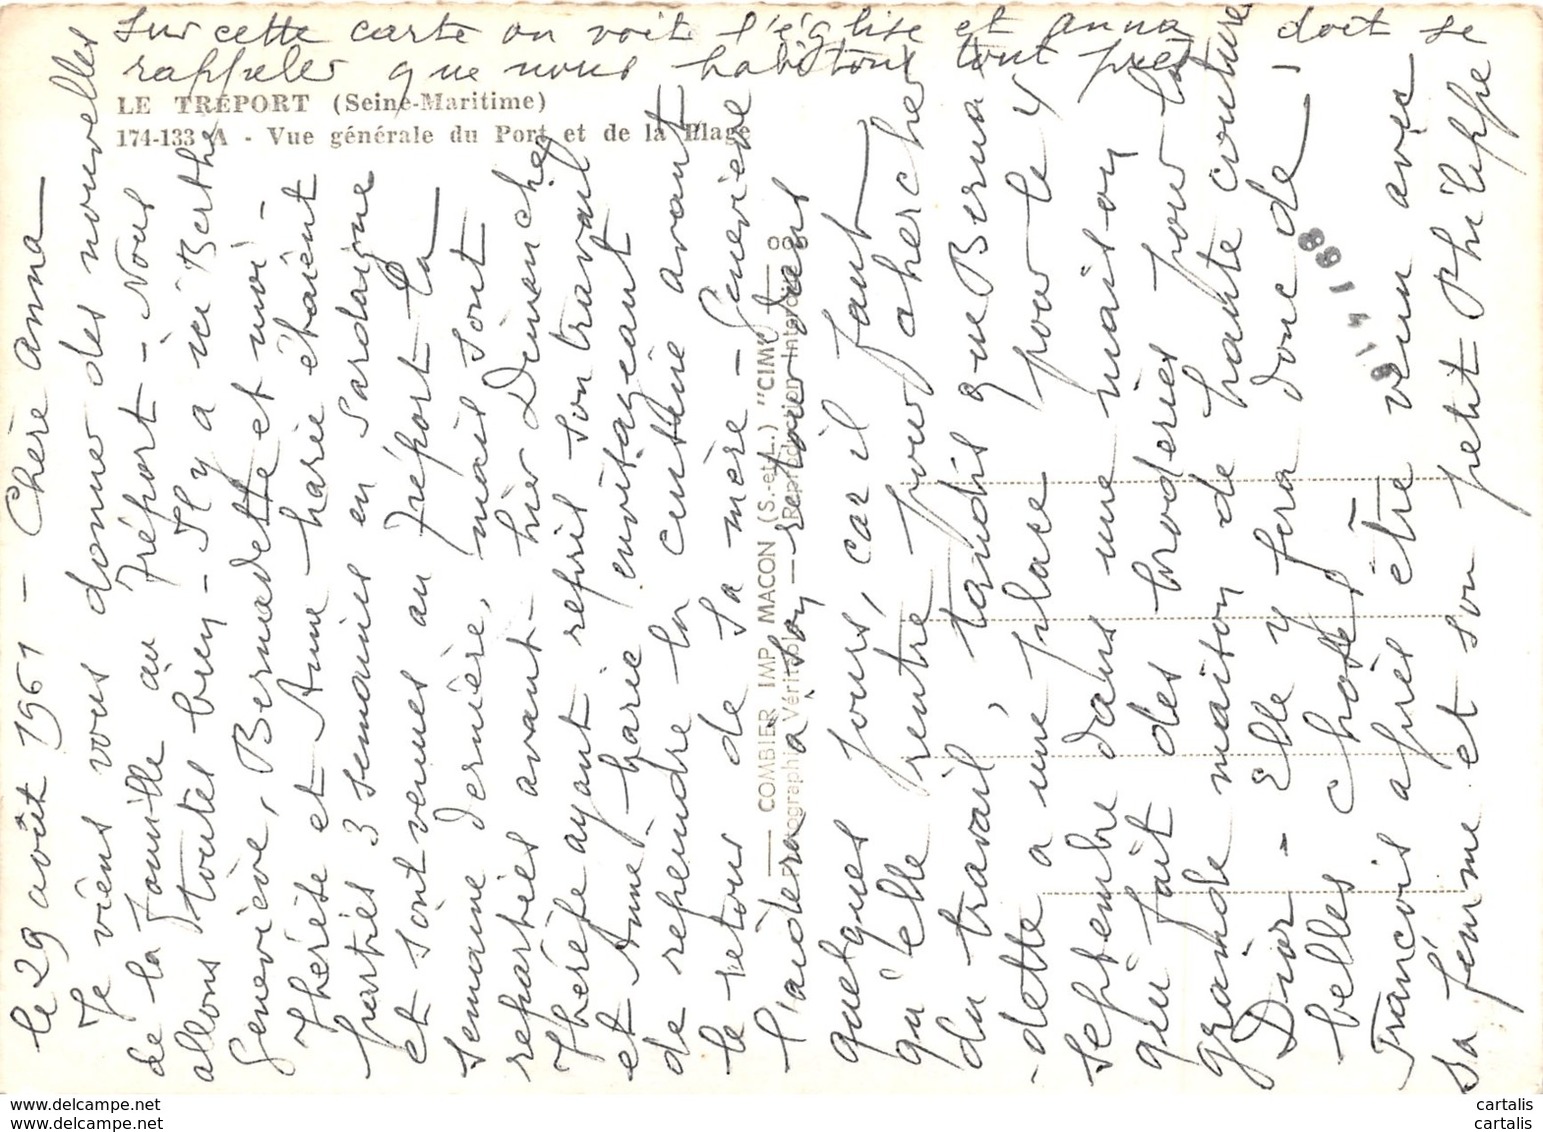 Sur cette carte on voit l'église et Anna doit se
rappeler que nous habitons tout près
LE TRÉPORT (Seine-Maritime)
174-133 A - Vue générale du Port et de la Plage
le 29 août 1961 - Chère Anna -
Je viens vous donner des nouvelles
de la famille au Tréport - Nous
allons toutes bien - Il y a ici Berthe
Geneviève, Bernadette et moi -
Thérèse et Anne-Marie étaient
parties 3 semaines en Sardaigne
et sont venues au Tréport la
semaine dernière, mais sont
reparties avant-hier Dimanche,
Thérèse ayant repris son travail
et Anne-Marie envisageant
de reprendre la couture avant
le retour de sa mère - Geneviève
l'aidera à son retour dans
quelques jours, car il faut
qu'elle rentre pour chercher
du travail, tandis que Berna
-dette a une place pour le 4
septembre dans une maison
qui fait des broderies pour la
grande maison de haute couture
Dior - Elle y fera donc de
belles choses -
François après être venu avec
sa femme et son petit Philippe
COMBIER IMP. MACON (S.-et-L.) "CIM"
Photographie Véritable - Reproduction Interdite
www.delcampe.net
www.delcampe.net
cartalis
cartalis